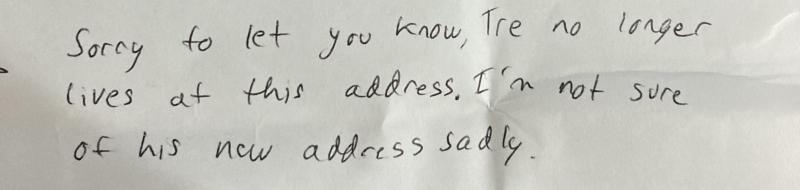 Sorry to let you know, Tre no longer
lives at this address. I'm not sure
of his new address sadly.